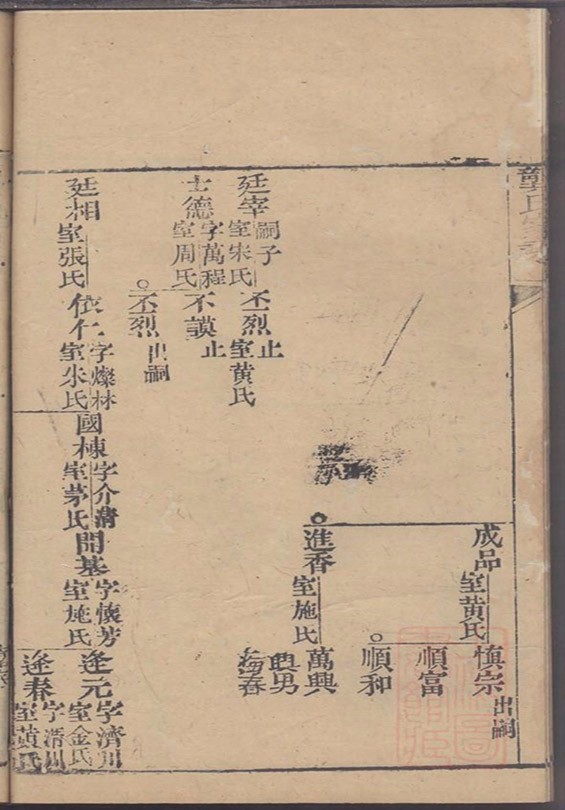 龔氏
成品
室黄氏
慎宗
出嗣
順富
順和
進香
室施氏
萬興
興男
春
廷宰
嗣子
室宋氏
丕烈
止
室黄氏
士德
字萬程
室周氏
丕謨
止
丕烈
出嗣
廷相
室張氏
依仁
字燦林
室朱氏
國棟
字介清
室茅氏
開基
字懷芳
室施氏
逢元
字濟川
室金氏
逢春
字清川
室黄氏